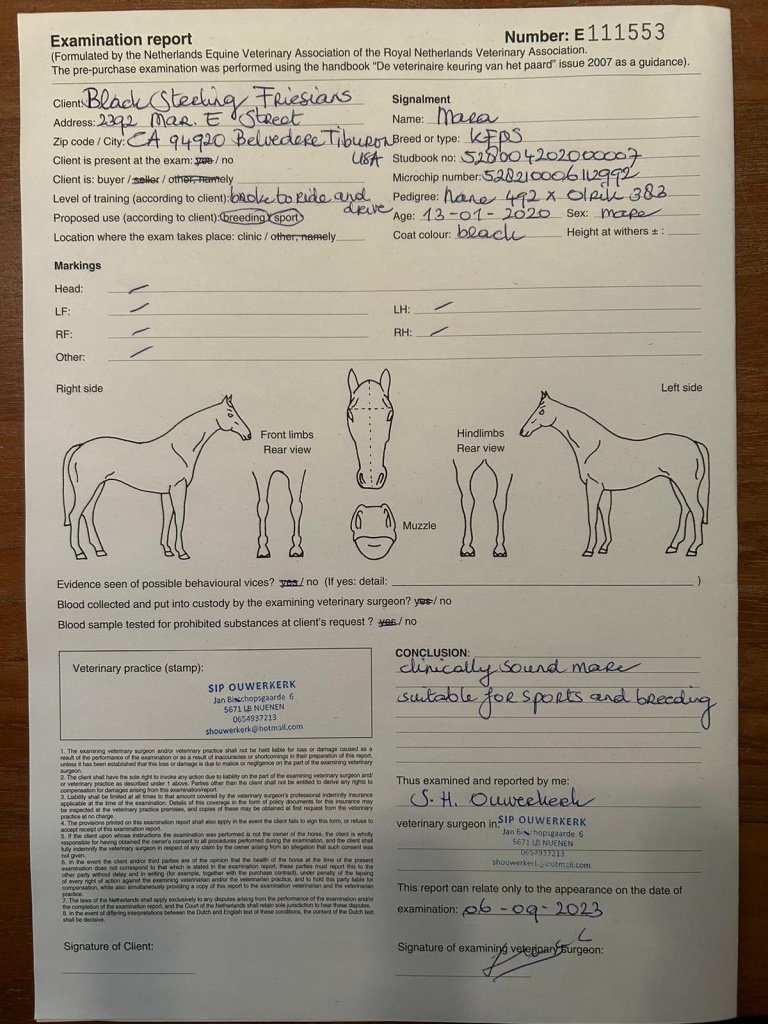 Examination report
Number: E 111553
(Formulated by the Netherlands Equine Veterinary Association of the Royal Netherlands Veterinary Association.
The pre-purchase examination was performed using the handbook “De veterinaire keuring van het paard” issue 2007 as a guidance).
Client: Black Sterling Friesians
Address: 2392 Mar. E Street
Zip code / City: CA 94920 Belvedere Tiburon
USA
Client is present at the exam: yes / no
Client is: buyer / seller / other, namely
Level of training (according to client): broke to ride and
drive
Proposed use (according to client): breeding / sport
Location where the exam takes place: clinic / other, namely
Signalment
Name: Mara
Breed or type: KFPS
Studbook no: 528004202000007
Microchip number: 528210006112992
Pedigree: Nane 492 x Olrik 383
Age: 13-01-2020 Sex: mare
Coat colour: black Height at withers ± :
Markings
Head: /
LF: / LH: /
RF: / RH: /
Other: /
Right side
Left side
Front limbs
Rear view
Hindlimbs
Rear view
Muzzle
Evidence seen of possible behavioural vices? yes / no (If yes: detail: )
Blood collected and put into custody by the examining veterinary surgeon? yes / no
Blood sample tested for prohibited substances at client's request ? yes / no
Veterinary practice (stamp):
SIP OUWERKERK
Jan Bisschopsgaarde 6
5671 LB NUENEN
0654937213
shouwerkerk@hotmail.com
1. The examining veterinary surgeon and/or veterinary practice shall not be held liable for loss or damage caused as a
result of the performance of the examination or as a result of inaccuracies or shortcomings in their preparation of this report,
unless it has been established that this loss or damage is due to malice or negligence on the part of the examining veterinary
surgeon.
2. The client shall have the sole right to invoke any action due to liability on the part of the examining veterinary surgeon and/
or veterinary practice as described under 1 above. Parties other than the client shall not be entitled to derive any rights to
compensation for damages arising from this examination/report.
3. Liability shall be limited at all times to that amount covered by the veterinary surgeon's professional indemnity insurance
applicable at the time of the examination. Details of this coverage in the form of policy documents for this insurance may
be inspected at the veterinary practice premises, and copies of these may be obtained at first request from the veterinary
practice at no charge.
4. The provisions printed on this examination report shall also apply in the event the client fails to sign this form, or refuse to
accept receipt of this examination report.
5. If the client upon whose instructions the examination was performed is not the owner of the horse, the client is wholly
responsible for having obtained the owner's consent to all procedures performed during the examination, and the client shall
fully indemnify the veterinary surgeon in respect of any claim by the owner arising from an allegation that such consent was
not given.
6. In the event the client and/or third parties are of the opinion that the health of the horse at the time of the present
examination does not correspond to that which is stated in the examination report, these parties must report this to the
other party without delay and in writing (for example, together with the purchase contract), under penalty of the lapsing
of every right of action against the examining veterinarian and/or the veterinarian practice, and to hold this party liable for
compensation, while also simultaneously providing a copy of this report to the examination veterinarian and the veterinarian
practice.
7. The laws of the Netherlands shall apply exclusively to any disputes arising from the performance of the examination and/or
the completion of the examination report, and the Court of the Netherlands shall retain sole jurisdiction to hear these disputes.
8. In the event of differing interpretations between the Dutch and English text of these conditions, the content of the Dutch text
shall be decisive.
Signature of Client:
CONCLUSION:
clinically sound mare
suitable for sports and breeding
Thus examined and reported by me:
S. H. Ouwerkerk
veterinary surgeon in:
SIP OUWERKERK
Jan Bisschopsgaarde 6
5671 LB NUENEN
0654937213
shouwerkerk@hotmail.com
This report can relate only to the appearance on the date of
examination: 06-09-2023
Signature of examining veterinary surgeon: